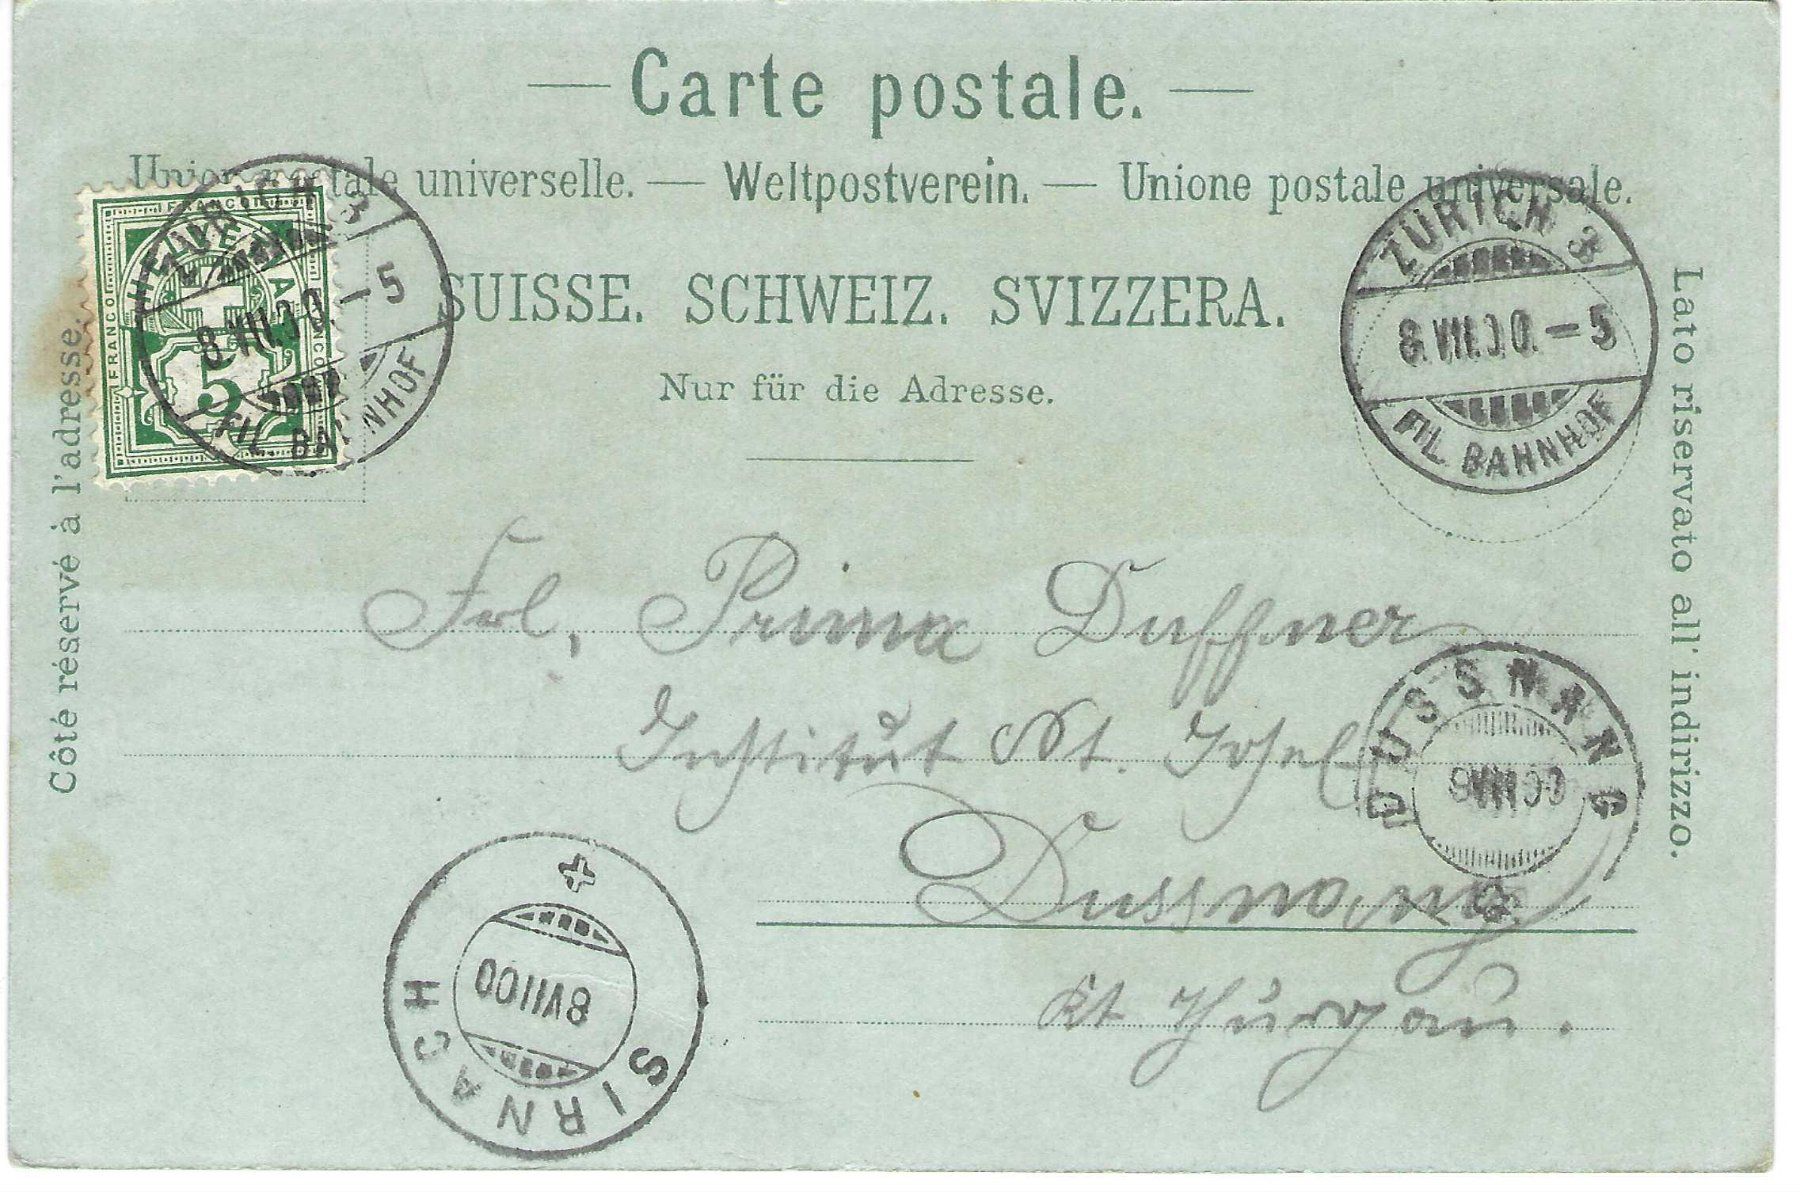 Carte postale.
Union postale universelle. — Weltpostverein. — Unione postale universale.
SUISSE. SCHWEIZ. SVIZZERA.
Nur für die Adresse.
Côté réservé à l'adresse.
Lato riservato all' indirizzo.
FRANCO
HELVETIA
FRANCO
FRANCO
5
ZÜRICH 3
8.VII.00.–5
FIL. BAHNHOF
ZÜRICH 3
8.VII.00.–5
FIL. BAHNHOF
Frl. Prima Duffner
Institut St. Josef
Dussnang
Kt. Thurgau.
DUSSNANG
SIRNACH
8 VII 00